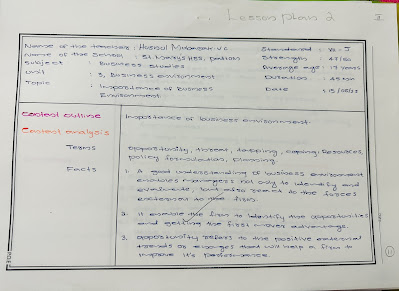 Lesson plan 2
Name of the teacher : Hosbul Mubasar. V.C
Standard : XI - J
Name of the school : St. Marys HSS, pattom
Strength : 47/50
Subject : Business studies
Average age : 17 years
Unit : 3, Business environment
Duration : 45 min
Topic : Importance of Business Environment
Date : 15/
Content outline
Importance of business environment.
Content analysis
Terms
Opportunity, threat, tapping, coping, Resources,
policy formulation, planning
Facts
1. A good understanding of business environment
enables managers not only to identify and
evaluate, but also react to the forces
external to the firm.
2. It enable the firm to identify the opportunities
and getting the first mover advantage.
3. Opportunity refers to the positive external
trends or changes that will help a firm to
improve it's performance.